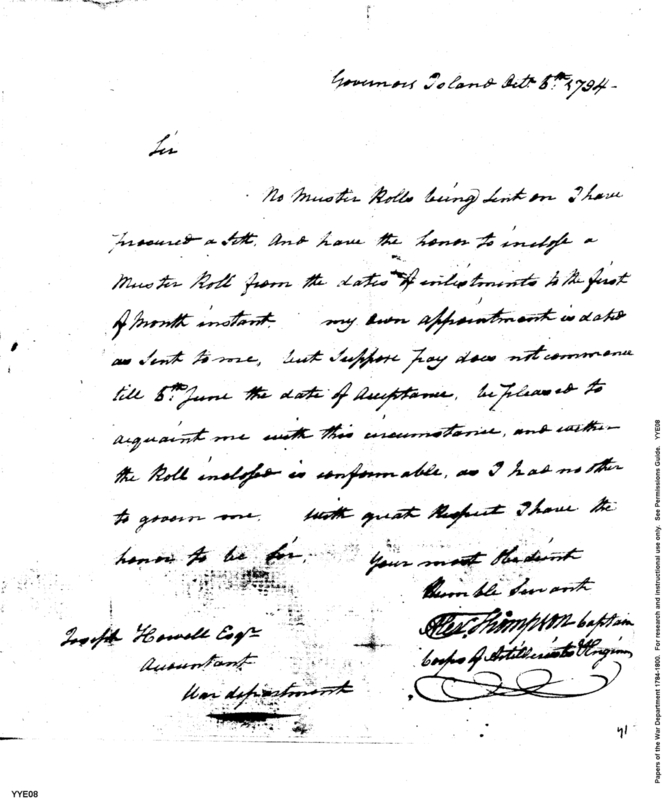 Governors Island Octr. 6th. 1794-
Sir
No Muster Rolls being sent on I have
procured a Sett. And have the honor to inclose a
Muster Roll from the dates of inlistments to the first
of Month instant. my own appointment is dated
as sent to me, but Suppose pay does not commence
till 6th June the date of Acceptance, be pleased to
acquaint me with this circumstance, and wither
the Roll inclosed is conformable, as I had no other
to govern me. With great Respect I have the
honor to be Sir,
Your most Obedient
Humble Servant
Alexr. Thompson Captain
Corps of Artillerists & Engin
Joseph Howell Esqr
Accountant
War department
71
YYE08
Papers of the War Department 1784-1800. For research and instructional use only. See Permissions Guide. YYE08